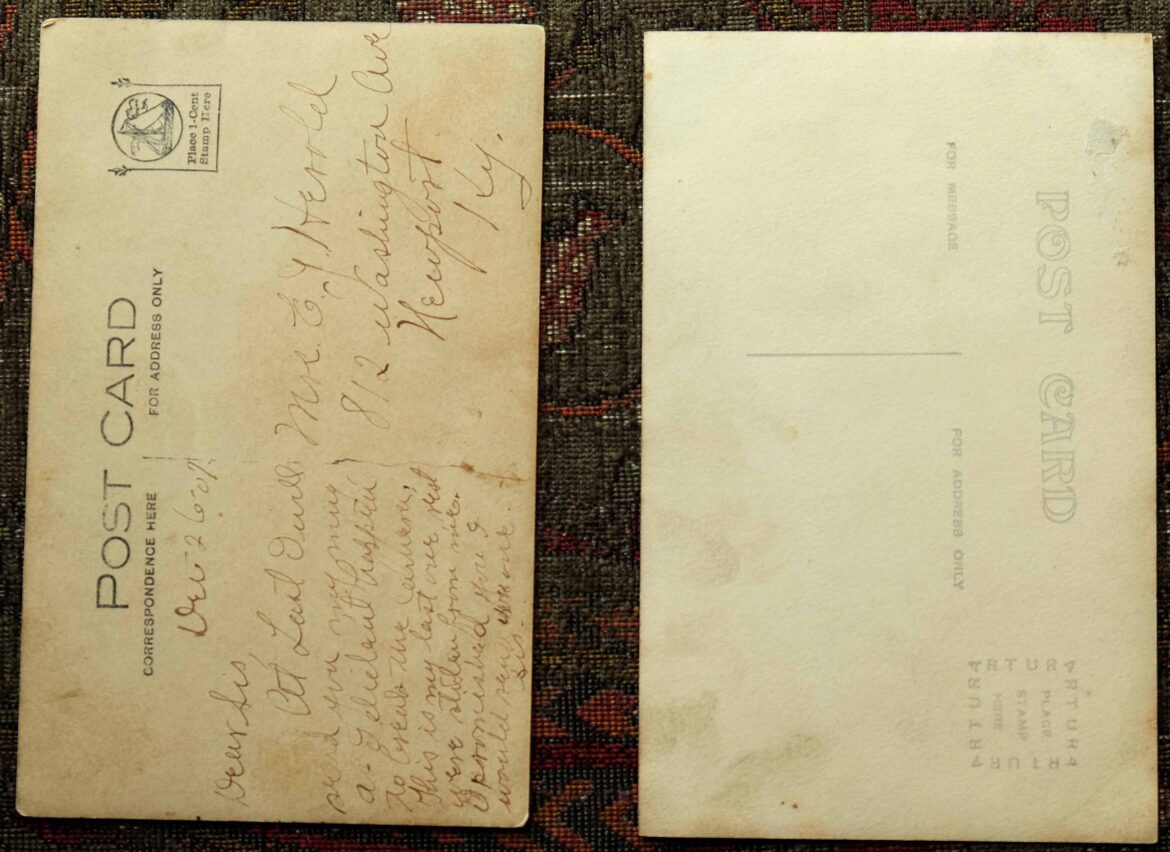 POST CARD
CORRESPONDENCE HERE
FOR ADDRESS ONLY
Place 1-Cent
Stamp Here
Dec 26-07
Dear Sis,
At Last I will
send you my
as I
to break the camera,
This is my last over rest
were stolen from me.
I promised you I
would send you one
Sis.
Mrs. E. Y. Herrold
812 Washington Ave
Newport
Ky.
POST CARD
FOR MESSAGE
FOR ADDRESS ONLY
ARTURA
ARTURA
PLACE
STAMP
HERE
ARTURA
ARTURA